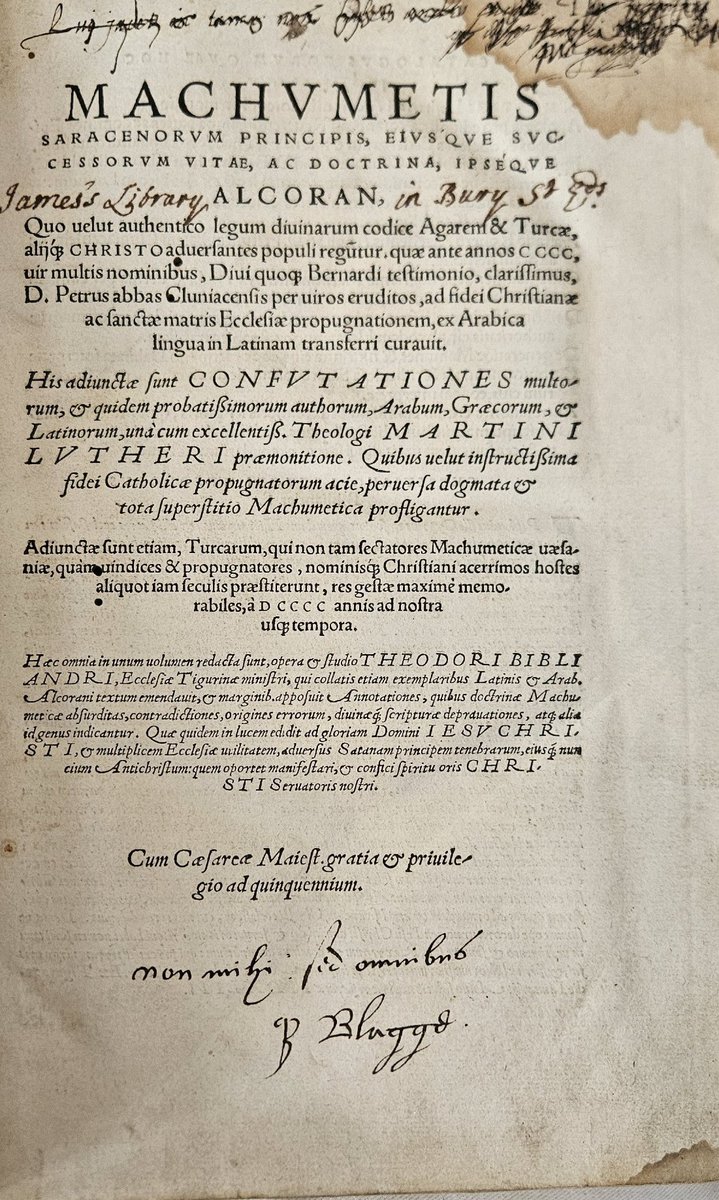 MACHVMETIS
SARACENORVM PRINCIPIS, EIVS'QVE SVC-
CESSORVM VITAE, AC DOCTRINA, IPSE'QVE
James's Library ALCORAN, in Bury St Eds.
Quo uelut authentico legum diuinarum codice Agareni & Turcæ,
alijq́; CHRISTO aduersantes populi regũtur. quæ ante annos CCCC,
uir multis nominibus, Diui quoq; Bernardi testimonio, clarissimus,
D. Petrus abbas Cluniacensis per uiros eruditos, ad fidei Christianæ
ac sanctæ matris Ecclesiæ propugnationem, ex Arabica
lingua in Latinam transferri curauit.
His adiunctæ sunt CONFVTATIONES multo-
rum, & quidem probatißimorum authorum, Arabum, Græcorum, &
Latinorum, unà cum excellentiß. Theologi MARTINI
LVTHERI præmonitione. Quibus uelut instructißima
fidei Catholicæ propugnatorum acie, peruersa dogmata &
tota superstitio Machumetica profligantur.
Adiunctæ sunt etiam, Turcarum, qui non tam sectatores Machumeticæ uæsa-
niæ, quàm uindices & propugnatores, nominisq́; Christiani acerrimos hostes
aliquot iam seculis præstiterunt, res gestæ maximè memo-
rabiles, à DCCCC annis ad nostra
usq; tempora.
Hæc omnia in unum uolumen redacta sunt, opera & studio THEODORI BIBLI
ANDRI, Ecclesiæ Tigurinæ ministri, qui collatis etiam exemplaribus Latinis & Arab.
Alcorani textum emendauit, & marginib. apposuit Annotationes, quibus doctrinæ Machu-
meticæ absurditas, contradictiones, origines errorum, diuinæq́; scripturæ deprauationes, atq; alia
id genus indicantur. Quæ quidem in lucem edidit ad gloriam Domini IESV CHRI-
STI, & multiplicem Ecclesiæ utilitatem, aduersus Satanam principem tenebrarum, eiusq́; nun
cium Antichristum: quem oportet manifestari, & confici spiritu oris CHRI-
STI Seruatoris nostri.
Cum Cæsareæ Maiest. gratia & priuile-
gio ad quinquennium.
non mihi sed omnibus
Blagge.